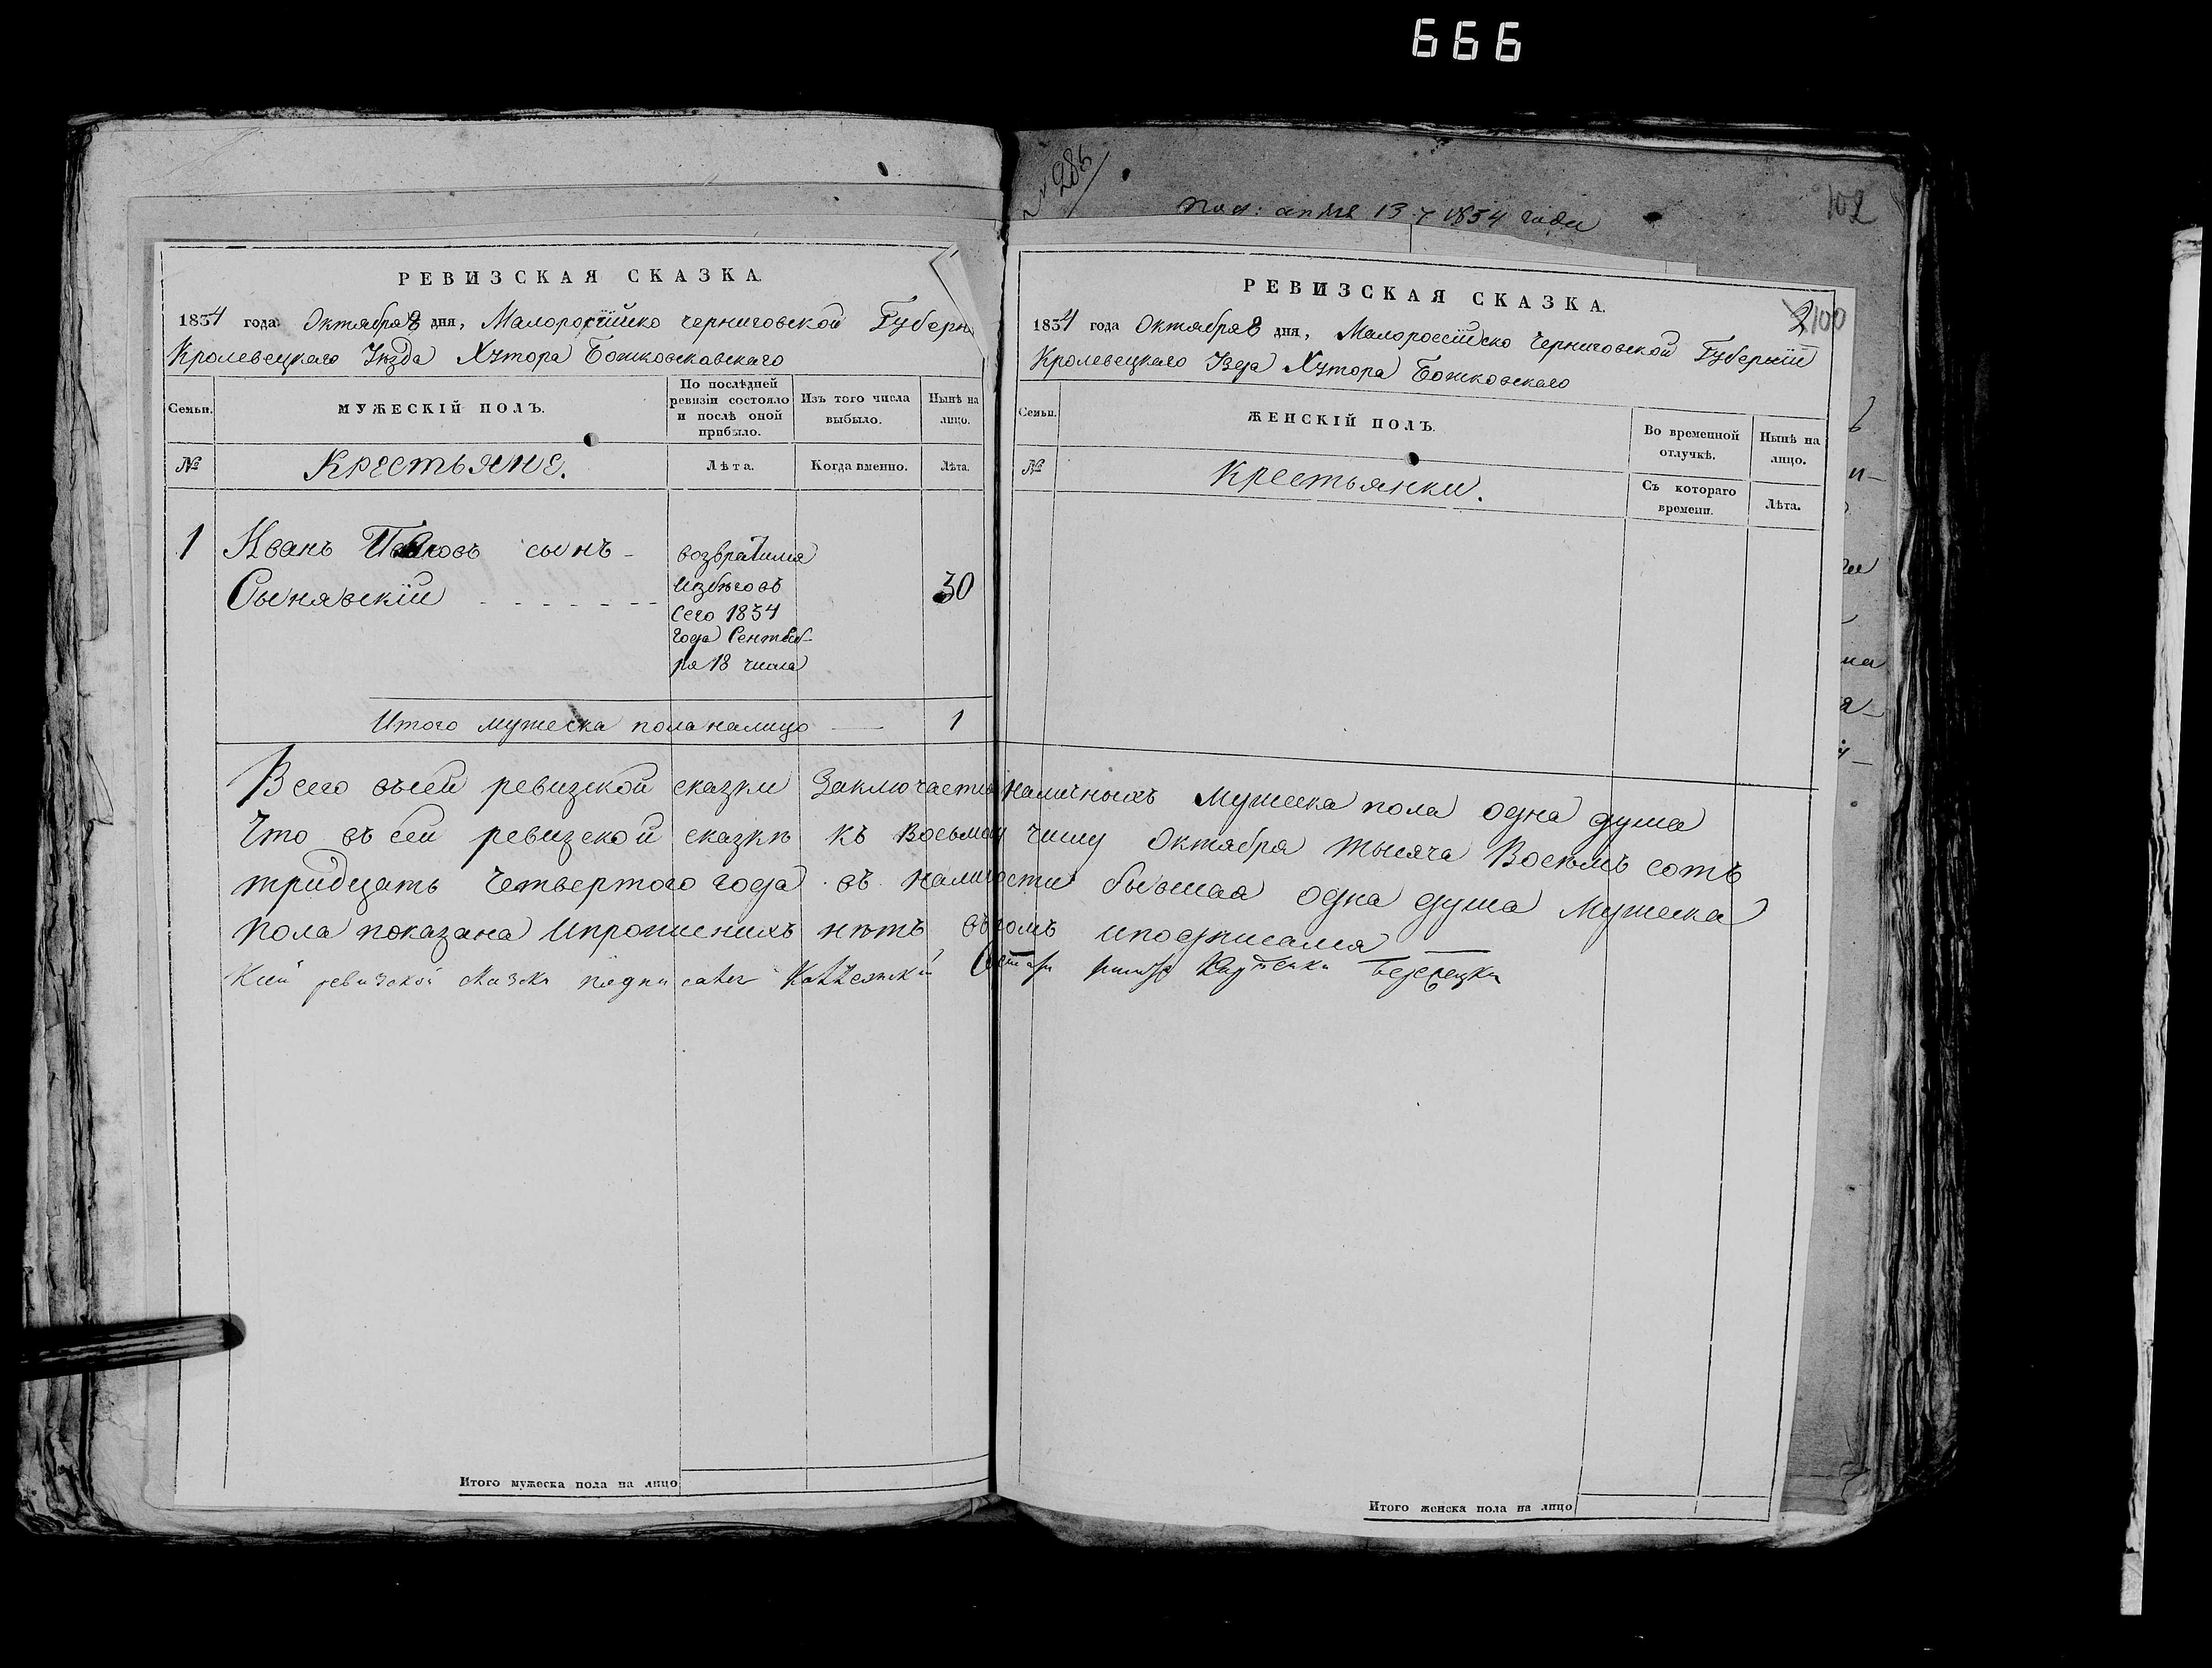 666
№ 286
102
1834 года
РЕВИЗСКАЯ СКАЗКА.
1834 года Октября 8 дня, Малороссійско Черниговской Губерн
Кролевецкаго Уѣзда Хутора Божковскавскаго
Семьи.
МУЖЕСКІЙ ПОЛЪ.
По послѣдней
ревизіи состояло
и послѣ оной
прибыло.
Изъ того числа
выбыло.
Нынѣ на
лицо.
№
Крестьяне.
Лѣта.
Когда именно.
Лѣта.
1
Иванъ сынъ
Сынявскій
возвратился
избѣговъ
сего 1834
года Сентяб-
ря 18 числа
30
Итого мужеска пола налицо 1
РЕВИЗСКАЯ СКАЗКА.
2 100
1834 года Октября 8 дня, Малороссійско Черниговской Губерніи
Кролевецкаго Уезда Хутора Божковскаго
Семьи.
ЖЕНСКІЙ ПОЛЪ.
Во временной
отлучкѣ.
Нынѣ на
лицо.
№
Крестьянки.
Съ котораго
времени.
Лѣта.
Всего въсей ревизской сказки Заключается наличныхъ Мужеска пола одна душа
Что въ сей ревизской сказкѣ къ Восьмому числу Октября тысяча Восемь сотъ
тридцать Четвертого года въ наличности бывшая одна душа Мужеска
пола показана ипрописныхъ нѣтъ вътомъ иподписался
Ксей ревизской сказки
Итого мужеска пола на лицо
Итого женска пола на лицо